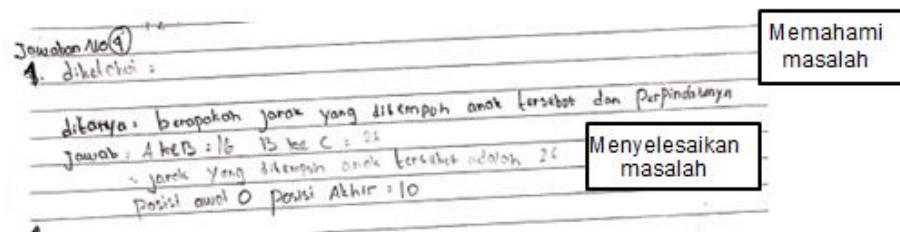 Jawaban No 4
1. diketahui :
ditanya : berapakah jarak yang ditempuh anak tersebut dan Perpindahanya
Jawab : A ke B : 16 B ke C : 26
jarak yang ditempuh anak tersebut adalah 26
Posisi awal 0 Posisi Akhir : 10
Memahami
masalah
Menyelesaikan
masalah